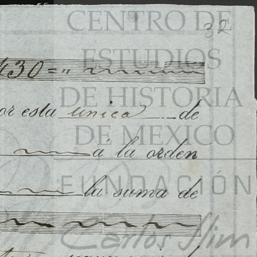 32
CENTRO DE
ESTUDIOS
430="
DE HISTORIA
or esta unica de
DE MEXICO
á la orden
FUNDACIÓN
la suma de
Carlos Slim